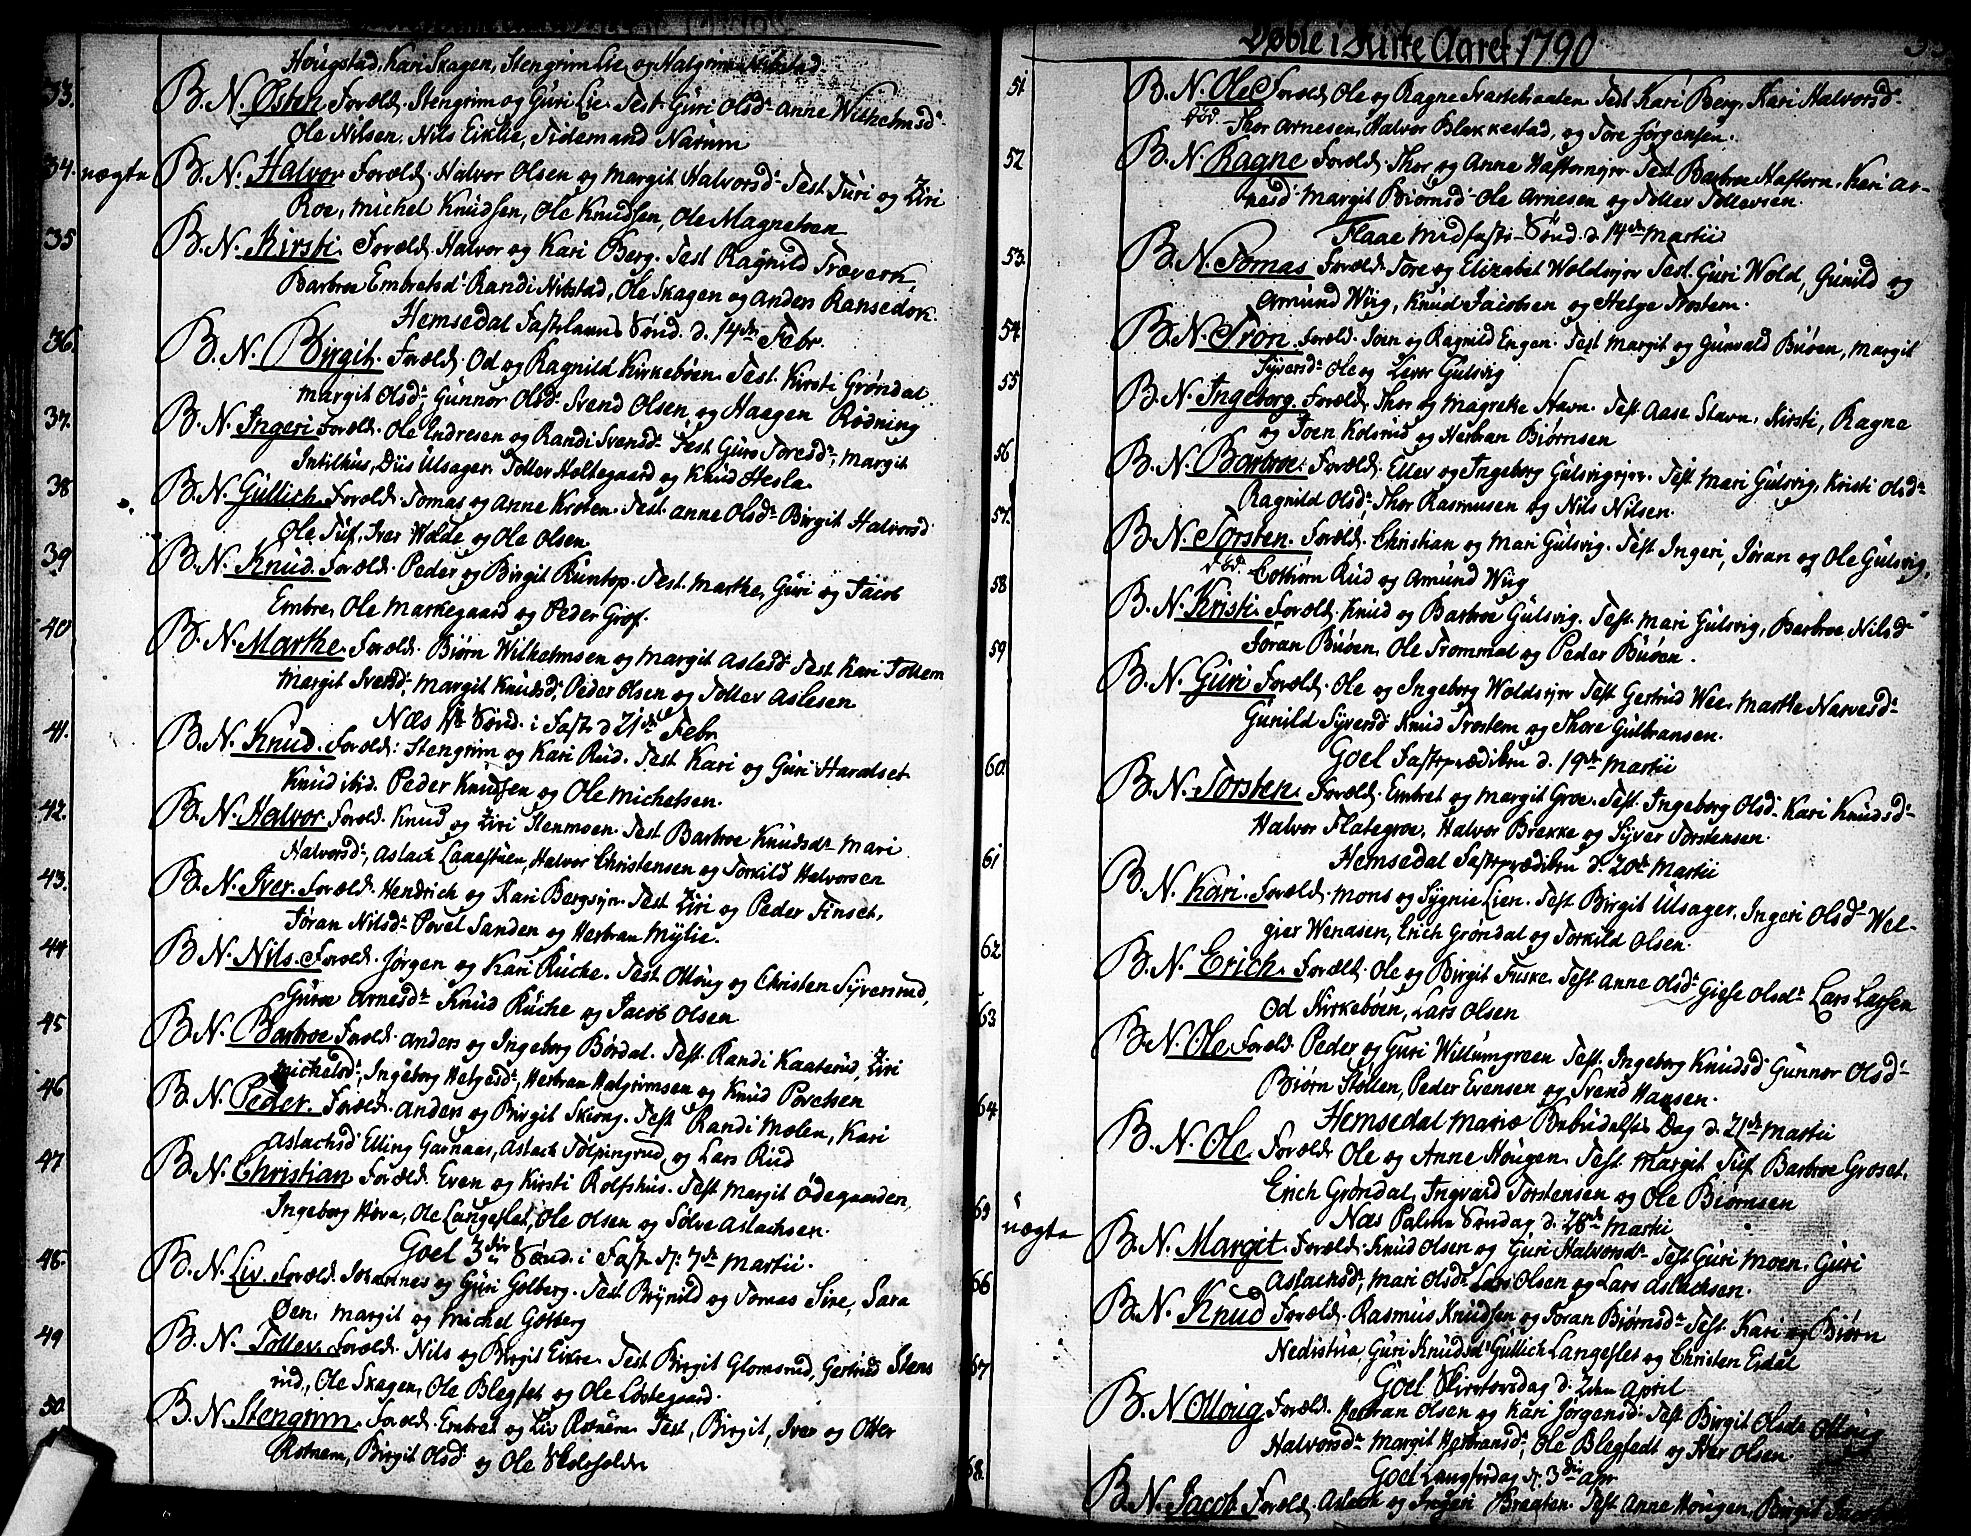 Hougstad, Kari Skagen, Stengrim Lie og Halgrim Nibstad
33. B. N. Østen Foræld. Stengrim og Guri Lie. Test. Guri Olsd. Anne Wilhelmsd.
Ole Nilsen, Nils Eiklie, Tidemand Narum
34. uægte B. N. Halvor Foræld. Halvor Olsen og Margit Halvorsd. Test Turi og Ziri
Roe, Michel Knudsen, Ole Knudsen, Ole Magnetven
35 B. N. Kirsti Foræld. Halvor og Kari Berg. Test Ragnild Træverk,
Barbroe Embretsd. Randi Nibstad, Ole Skagen og Anders Ransedok.
Hemsedal Fastelavns Sønd. d. 14de Febr.
36. B. N. Birgit. Foræld. Od og Ragnild Kirkebøen. Test. Kirsti Grøndal
Margit Olsd. Gunnor Olsd. Svend Olsen og Haagen Rødning
37. B. N. Ingeri Foræld. Ole Endresen og Randi Svensd. Test Guro Toresd. Margit
Intilhus, Diis Ulsager. Toller Holtegaard og Knud Hesla.
38 B. N. Gullich Foræld. Tomas og Anne Kroten. Test. Anne Olsd. Birgit Halvorsd
Ole Tuf, Iver Wolde og Ole Olsen
39 B. N. Knud. Foræld. Peder og Birgit Runtop. Test. Marthe, Guri og Jacob
Embre, Ole Markegaard og Peder Grøf.
40 B. N. Marthe. Foræld. Biørn Wilhelmsen og Margit Aslesd. Test Kari Tottem
Margit Iversd. Margit Knudsd. Peder Olsen og Tollev Aslesen
Næs 1te Sønd. i Fast. d. 21de Febr
41. B. N. Knud. Foræld: Stengrim og Kari Rud. Test Kari og Guri Haralset
Knud ibid. Peder Knudsen og Ole Michelsen.
42. B. N. Halvor Foræld. Knud og Ziri Stenmoen. Test Barbroe Knudsd. Mari
Halvorsd. Aslach Lanestuen, Halvor Christensen og Torkild Halvorsen
43. B. N. Iver. Foræld. Hendrich og Kari Bergsejer Test Ziri og Peder Finset,
Jøran Nilsd. Povel Sanden og Herbran Mylie.
44 B. N. Nils. Foræld. Jørgen og Kari Ruche. Test Olløug og Christen Syversrud,
Guroe Arnesd. Knud Ruche og Jacob Olsen
45 B. N. Barbroe Foræld. Anders og Ingeborg Børdal. Test. Randi Kaaterud, Ziri
Michelsd. Ingeborg Helgesd. Herbran Halgrimsen og Knud Povelsen
46 B. N. Peder. Foræld. Anders og Birgit Skiong. Test Randi Molen, Kari
Aslachsd. Elling Garnaas, Aslach Tolpingrud og Lars Rud
47 B. N. Christian Foræld. Even og Kirsti Rolfshus. Test Margit Ødegaarden,
Ingeborg Hova, Ole Langeslet, Ole Olsen og Sølve Aslachsen.
Goel 3die Sønd. i Fast. d. 7de Martii.
48. B. N. Liv. Foræld. Johannes og Guri Golberg. Test Brynild og Tomas Sire, Sara
Øen, Margit og Michel Golberg
49 B. N. Tollev. Foræld. Nils og Birgit Eikre. Test Birgit Glomsrud, Gertrud Stens
rud, Ole Skagen, Ole Blegset og Ole Løstegaard.
50. B. N. Stengrim. Foræld. Embret og Liv Rotnem. Test, Birgit, Iver og Otter
Rotnem, Birgit Olsd. og Ole
Døbte i Næste Aaret 1790
51 B. N. Ole Foræld. Ole og Ragne Svartebraaten. Test Kari Berg, Kari Halvorsd.
død. Thor Arnesen, Halvor Blakkestad, og Tore Jørgensen.
52 B. N. Ragne Foræld. Thor og Anne Haftornejer. Test Barbroe Haftorn, Kari Ar-
nesd. Margit Biørnsd. Ole Arnesen og Toller Tollevsen.
Flaae Midfaste-Sønd. d. 14de Martii
53. B. N. Tomas Foræld. Tore og Elizabet Woldsejer Test. Guri Wold, Gunild og
Amund Wiig, Knud Jacobsen og Helge Trostem.
54. B. N. Tron Foræld. Joen og Ragnild Engen. Test Margit og Gunvald Buøen, Margit
Syversd. Ole og Lever Gulsvig
55 B. N. Ingeborg. Foræld. Thor og Magrethe Stavn. Test Aase Stavn, Kirsti, Ragne
og Joen Kolsrud og Herbran Biørnsen
56 B. N. Barbroe. Foræld. Ellev og Ingeborg Gulsvigejer. Test Mari Gulsvig, Kristi Olsd.
Ragnild Olsd. Thor Rasmusen og Nils Nilsen.
57. B. N. Torsten. Foræld. Christian og Mari Gulsvig. Test Ingeri, Jøran og Ole Gulsvig,
død. Cotbiorn Rud og Amund Wiig
58 B. N. Kristi Foræld. Knud og Barbroe Gulsvig. Test. Mari Gulsvig, Barbroe Nilsd.
Jøran Buøen, Ole Trommal og Peder Buøen.
59 B. N. Guri Foræld. Ole og Ingeborg Woldsejer Test Gertrud Wee, Marthe Narvesd.
Gunild Syversd. Knud Trostem og Thore Gulbransen.
Goel Fasteprædiken d. 19de Martii
60. B. N. Torsten. Foræld. Embret og Margit Groe. Test. Ingeborg Olsd. Kari Knudsd.
Halvor Flategroe, Halvor Brekke og Syver Torstensen.
Hemsedal Fasteprædiken d. 20de Martii
61 B. N. Kari. Foræld. Mons og Sygnie Lien. Test Birgit Ulsager, Ingeri Olsd. Wel-
gier Wenasen, Erich Grøndal og Torkild Olsen.
62 B. N. Erich. Foræld. Ole og Birgit Fuske. Test Anne Olsd. Giese Olsd. Lars Larsen
Od Kirkebøen, Lars Olsen
63 B. N. Ole. Foræld. Peder og Guri Willumgreen Test. Ingeborg Knudsd Gunnor Olsd.
Biørn Støllen, Peder Evensen og Svend Hansen.
Hemsedal Mariæ Bebudelses Dag d. 21de Martii
64 B. N. Ole Foræld. Ole og Anne Hougen. Test Margit Tuf, Barbroe Groset,
Erich Grøndal, Ingvard Torstensen og Ole Biørnsen
Næs Palme Søndag d. 28de Martii
65 uægte B. N. Margit. Foræld. Knud Olsen og Guri Halvorsd. Test Guri Moen, Guri
Aslachsd. Mari Olsd. Lars Olsen og Lars Aslachsen.
66 B. N. Knud Foræld. Rasmus Knudsen og Jøran Biørnsd. Test. Kari og Biørn
Nedistua Guri Knudsd. Gullich Langeslet og Christen Eidal
Goel Skiertorsdag d. 2den April
67 B. N. Olløug Foræld. Herbran Olsen og Kari Jørgensd. Test Birgit Olsd. Olløug
Halvorsd. Margit Herbransd. Ole Blegstedt og Iver Olsen.
Goel Langfredag d. 3die Apr.
68. B. N. Jacob Foræld. Aslach og Ingeri Bragten. Test Anne Hougen, Birgit